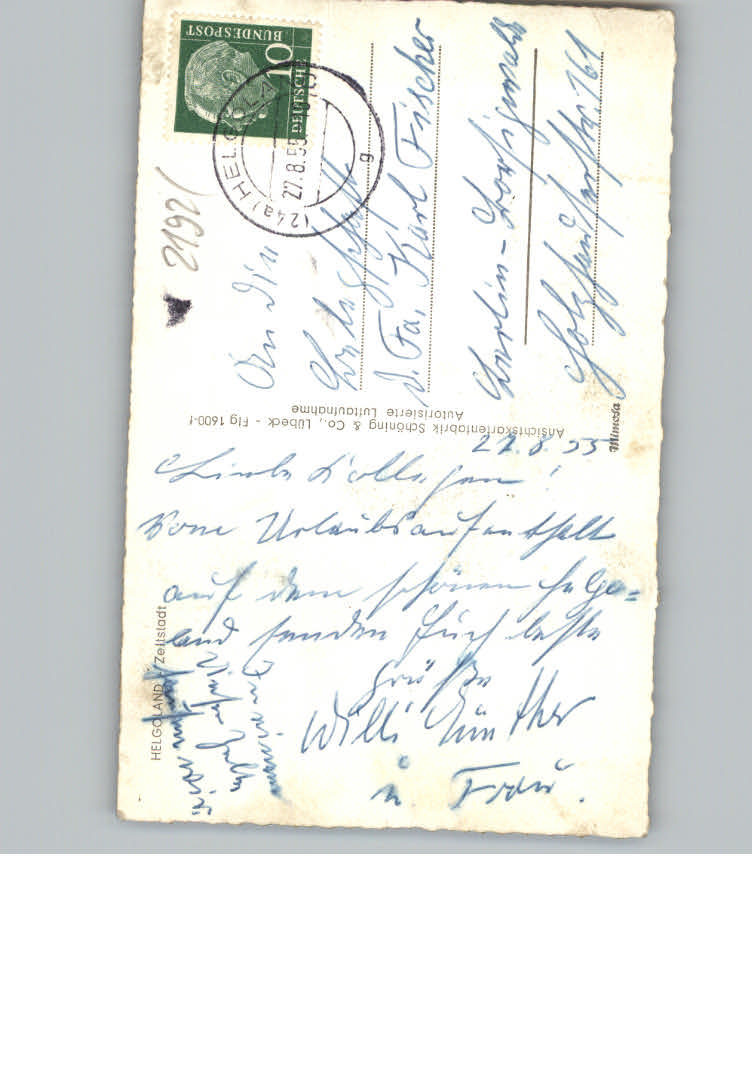 27.8.55
Liebe Kollegen!
Vom Urlaubsaufenthalt
auf dem schönen Helgo=
land senden Euch beste
Grüße
Willi Günther
u Frau.
HELGOLAND Zeltstadt
Ansichtskartenfabrik Schöning & Co., Lübeck - Flg 1600-1
Autorisierte Luftaufnahme
Mimosa
DEUTSCHE
BUNDESPOST
10
(24a) HELGOLAND
27.8.55
g
2192/
An die
Belegschaft
d. Fa. Karl Fischer
Berlin-Borsigwalde
Holzhauserstr. 161